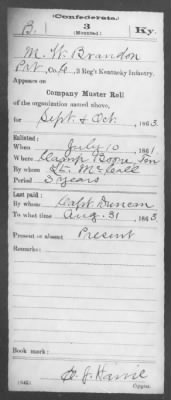 (Confederate.)
B. 3 Ky.
(Mounted.)
M. W. Brandon
Pvt, Co. , 3 Reg't Kentucky Infantry.
Appears on
Company Muster Roll
of the organization named above,
for Sept & Oct, 1863.
Enlisted:
When July 10, 1861
Where Camp Boone Ten
By whom
Period 3 years
Last paid:
By whom Capt Duncan
To what time Aug. 31, 1863.
Present or absent Present
Remarks:
Book mark:
(642)
Copyist.